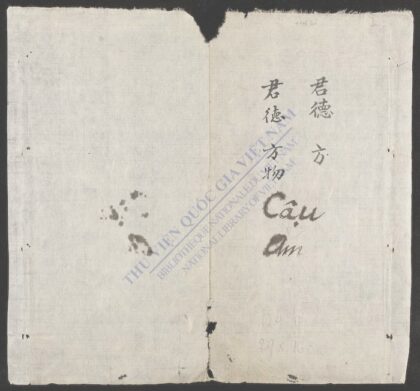 君德 方
君德 方物
Cậu
Am
THƯ VIỆN QUỐC GIA VIỆT NAM
BIBLIOTHEQUE NATIONALE DU VIETNAM
NATIONAL LIBRARY OF VIETNAM